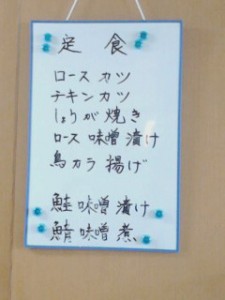 定食
ロースカツ
チキンカツ
しょうが焼き
ロース味噌漬け
鳥カラ揚げ
鮭味噌漬け
鯖味噌煮